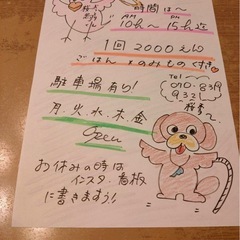 時間は〜
AM 10h〜 PM 15h迄
1回 2000えん
ごはん のみものつき
駐車場有り!
Tel
月.火.水.木.金
Open
お休みの時は
インスタ、看板
に書きますう!